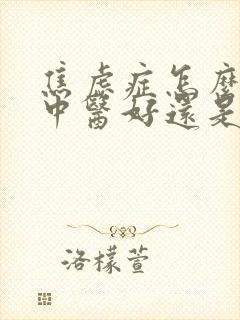 焦虑症怎麼
中醫好還是
洛檬萱